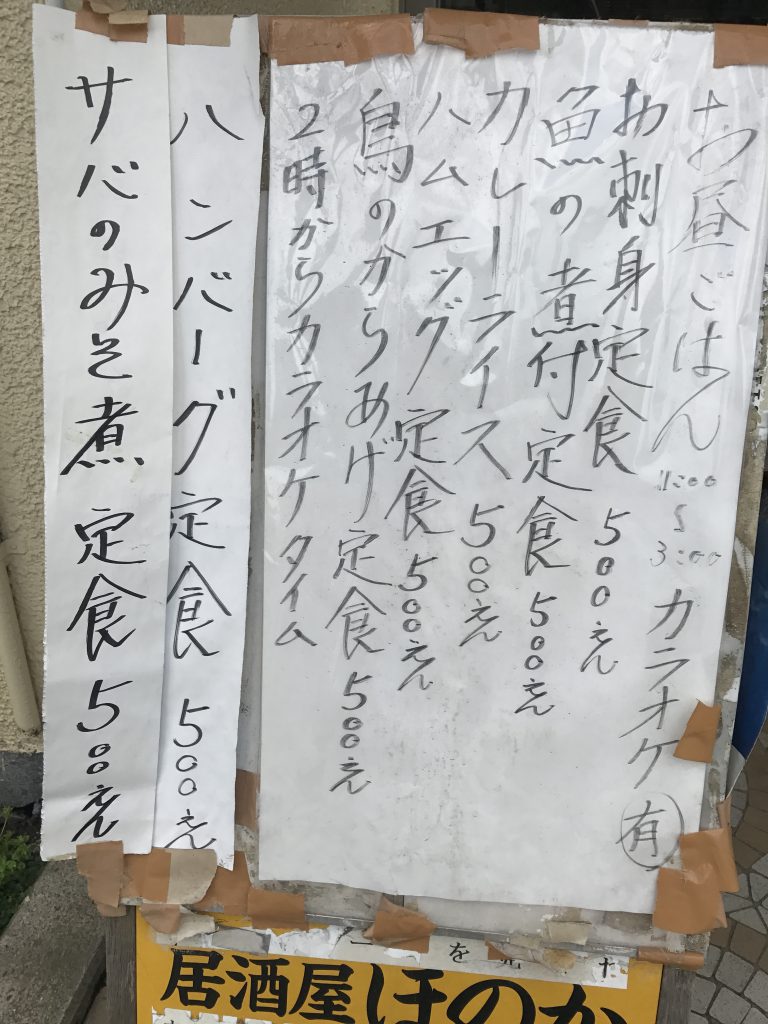 お昼ごはん 11:00〜3:00 カラオケ 有
お刺身定食 500えん
魚の煮付定食 500えん
カレーライス 500えん
ハムエッグ定食 500えん
鳥のからあげ定食 500えん
2時からカラオケタイム
ハンバーグ定食 500えん
サバのみそ煮定食 500えん
居酒屋ほのか